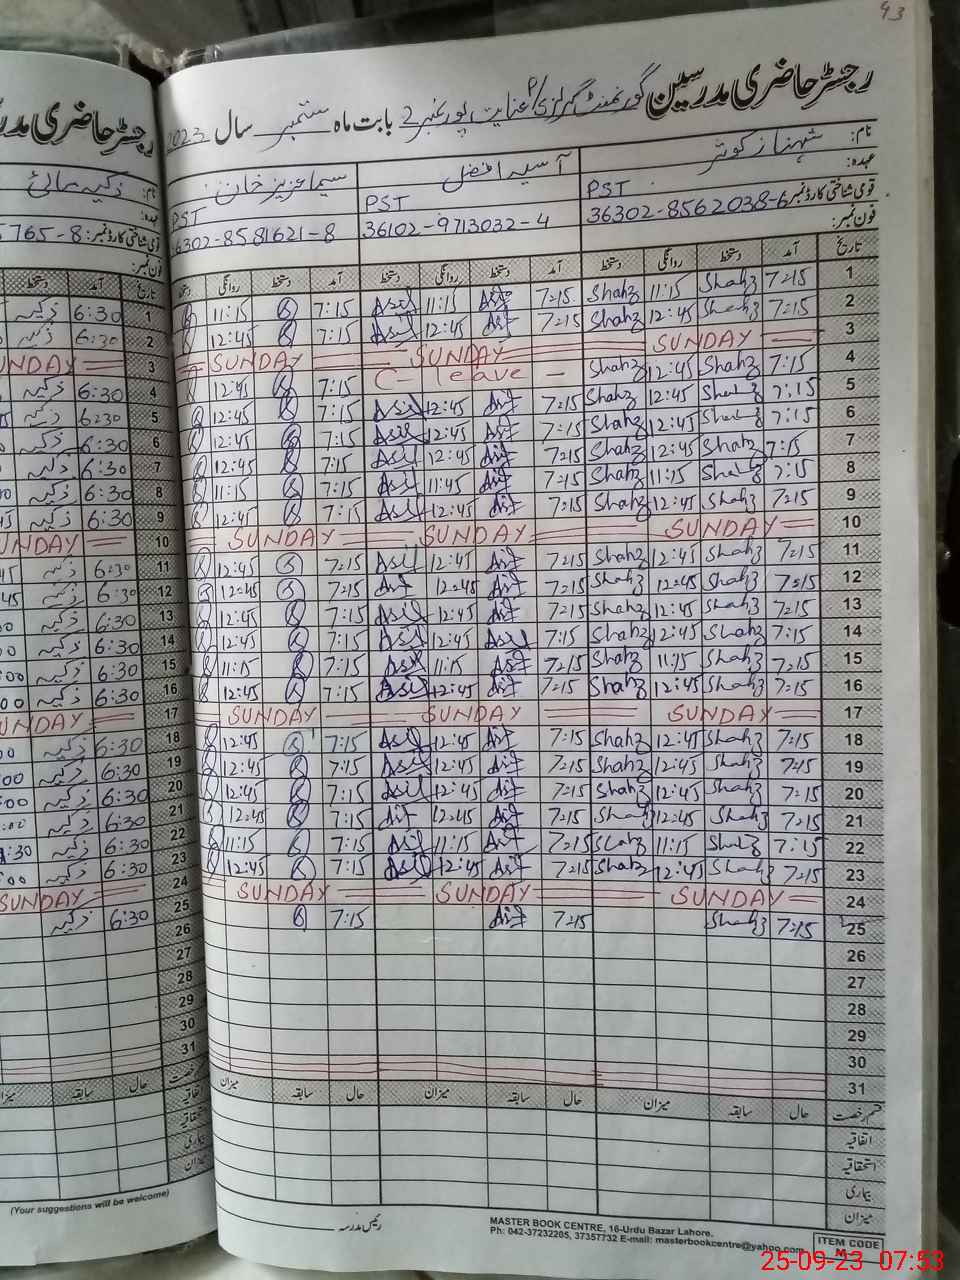 93
رجسٹر حاضری مدرسین گورنمنٹ گرلز پ/س عنایت پور نمبر 2 بابت ماہ ستمبر سال 2023
نام: شہناز کوثر آسیہ افضل سیما عزیز خان
عہدہ: PST PST PST
قومی شناختی کارڈ نمبر: 36302-8562038-6 36102-9713032-4 36302-8581621-8
فون نمبر:
تاریخ آمد دستخط روانگی دستخط آمد دستخط روانگی دستخط آمد دستخط روانگی دستخط
1 7:15 Shahz 11:15 Shahz 7:15 Asif 11:15 Asif 7:15 11:15
2 7:15 Shahz 12:45 Shahz 7:15 Asif 12:45 Asif 7:15 12:45
3 SUNDAY SUNDAY SUNDAY
4 7:15 Shahz 12:45 Shahz C-leave 7:15 12:45
5 7:15 Shahz 12:45 Shahz 7:15 Asif 12:45 Asif 7:15 12:45
6 7:15 Shahz 12:45 Shahz 7:15 Asif 12:45 Asif 7:15 12:45
7 7:15 Shahz 12:45 Shahz 7:15 Asif 12:45 Asif 7:15 12:45
8 7:15 Shahz 11:15 Shahz 7:15 Asif 11:45 Asif 7:15 11:15
9 7:15 Shahz 12:45 Shahz 7:15 Asif 12:45 Asif 7:15 12:45
10 SUNDAY SUNDAY SUNDAY
11 7:15 Shahz 12:45 Shahz 7:15 Asif 12:45 Asif 7:15 12:45
12 7:15 Shahz 12:45 Shahz 7:15 Asif 12:45 Asif 7:15 12:45
13 7:15 Shahz 12:45 Shahz 7:15 Asif 12:45 Asif 7:15 12:45
14 7:15 Shahz 12:45 Shahz 7:15 Asif 12:45 Asif 7:15 12:45
15 7:15 Shahz 11:15 Shahz 7:15 Asif 11:15 Asif 7:15 11:15
16 7:15 Shahz 12:45 Shahz 7:15 Asif 12:45 Asif 7:15 12:45
17 SUNDAY SUNDAY SUNDAY
18 7:15 Shahz 12:45 Shahz 7:15 Asif 12:45 Asif 7:15 12:45
19 7:15 Shahz 12:45 Shahz 7:15 Asif 12:45 Asif 7:15 12:45
20 7:15 Shahz 12:45 Shahz 7:15 Asif 12:45 Asif 7:15 12:45
21 7:15 Shahz 12:45 Shahz 7:15 Asif 12:45 Asif 7:15 12:45
22 7:15 Shahz 11:15 Shahz 7:15 Asif 11:15 Asif 7:15 11:15
23 7:15 Shahz 12:45 Shahz 7:15 Asif 12:45 Asif 7:15 12:45
24 SUNDAY SUNDAY SUNDAY
25 7:15 Shahz 7:15 Asif 7:15
26
27
28
29
30
31
قسم رخصت حال سابقہ میزان حال سابقہ میزان حال سابقہ میزان
اتفاقیہ
استحقاقیہ
بیماری
میزان
رئیس مدرسہ
MASTER BOOK CENTRE, 16-Urdu Bazar Lahore.
Ph: 042-37232205, 37357732 E-mail: masterbookcentre@yahoo.com
ITEM CODE
رجسٹر حاضری مدر
نام:
عہدہ:
قومی شناختی کارڈ نمبر: 5765-8
فون نمبر:
تاریخ آمد دستخط
1 6:30 ذکیہ
2 6:30 ذکیہ
3 SUNDAY
4 6:30 ذکیہ
5 6:30 ذکیہ
6 6:30 ذکیہ
7 6:30 ذکیہ
8 6:30 ذکیہ
9 6:30 ذکیہ
10 SUNDAY
11 6:30 ذکیہ
12 6:30 ذکیہ
13 6:30 ذکیہ
14 6:30 ذکیہ
15 6:30 ذکیہ
16 6:30 ذکیہ
17 SUNDAY
18 6:30 ذکیہ
19 6:30 ذکیہ
20 6:30 ذکیہ
21 6:30 ذکیہ
22 6:30 ذکیہ
23 6:30 ذکیہ
24 SUNDAY
25 6:30 ذکیہ
26
27
28
29
30
31
رخصت حال سابقہ میزان
اتفاقیہ
استحقاقیہ
بیماری
میزان
(Your suggestions will be welcome)
25-09-23 07:53